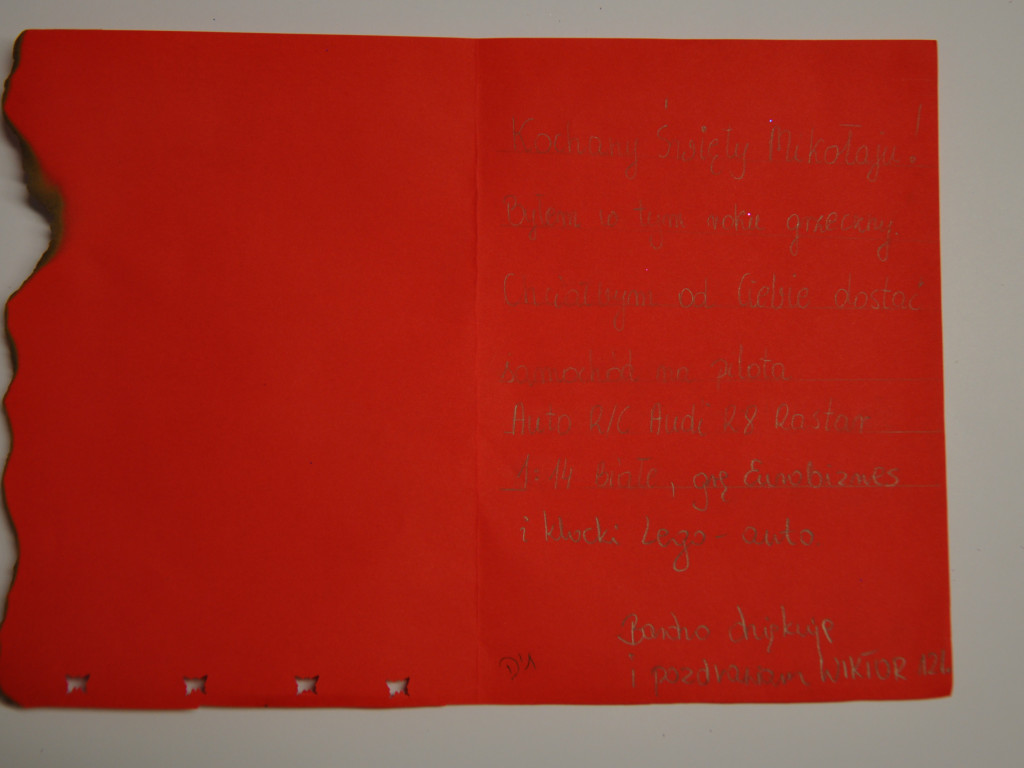 Kochany Święty Mikołaju!
Byłem w tym roku grzeczny.
Chciałbym od Ciebie dostać
samochód na pilota
Auto R/C Audi R8 Rastar
1:14 Białe, grę Eurobiznes
i klocki Lego - auto
Bardzo dziękuję
i pozdrawiam WIKTOR 12L
D'1